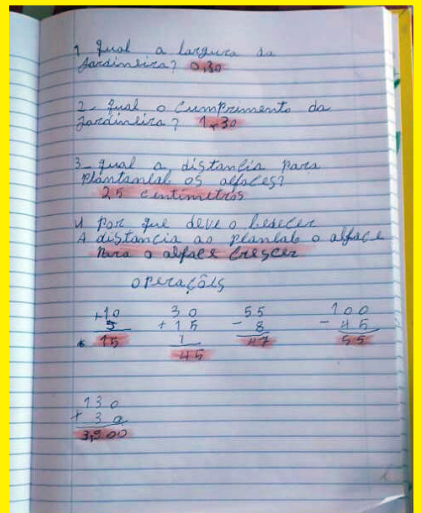 1 qual a largura da
Jardineira? 0,30
2- qual o Cumprimento da
Jardineira? 1,30
3- qual a distancia Para
Plantanlab os alfaces?
25 centimetros
4 Por que deve o besecer
A distancia ao Planlab o alface
Para o alface Crescer
operaçõis
+10 30 55 100
5 +15 - 8 - 45
15 1 47 55
45
130
+ 30
3,900